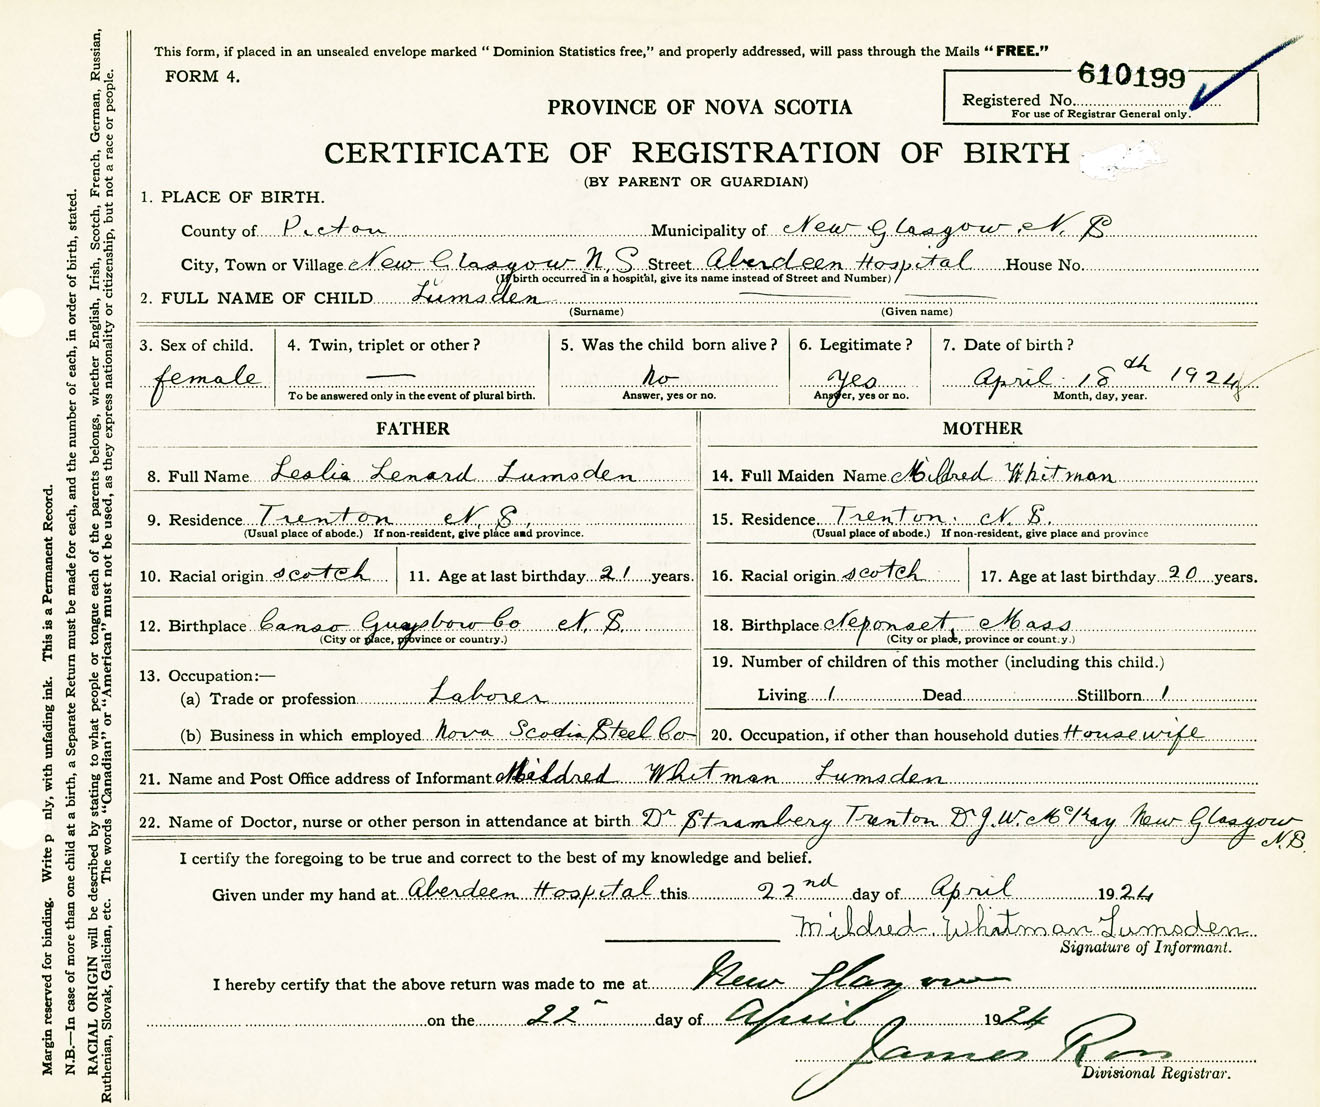 This form, if placed in an unsealed envelope marked "Dominion Statistics free," and properly addressed, will pass through the Mails "FREE."
FORM 4.
610199
Registered No.
For use of Registrar General only.
PROVINCE OF NOVA SCOTIA
CERTIFICATE OF REGISTRATION OF BIRTH
(BY PARENT OR GUARDIAN)
1. PLACE OF BIRTH.
County of Picton Municipality of New Glasgow N. S
City, Town or Village New Glasgow N. S Street Aberdeen Hospital House No.
(If birth occurred in a hospital, give its name instead of Street and Number)
2. FULL NAME OF CHILD Lumsden — —
(Surname) (Given name)
3. Sex of child. 4. Twin, triplet or other? 5. Was the child born alive? 6. Legitimate? 7. Date of birth?
female — No Yes April 18th 1924
To be answered only in the event of plural birth. Answer, yes or no. Answer, yes or no. Month, day, year.
FATHER MOTHER
8. Full Name Leslie Lenard Lumsden 14. Full Maiden Name Mildred Whitman
9. Residence Trenton N. S. 15. Residence Trenton. N. S.
(Usual place of abode.) If non-resident, give place and province. (Usual place of abode.) If non-resident, give place and province
10. Racial origin scotch 11. Age at last birthday 21 years. 16. Racial origin scotch 17. Age at last birthday 20 years.
12. Birthplace Canso Guysboro Co N. S. 18. Birthplace Neponset Mass
(City or place, province or country.) (City or place, province or count.y.)
13. Occupation:— 19. Number of children of this mother (including this child.)
(a) Trade or profession Laborer Living 1 Dead Stillborn 1
(b) Business in which employed Nova Scotia Steel Co 20. Occupation, if other than household duties Housewife
21. Name and Post Office address of Informant Mildred Whitman Lumsden
22. Name of Doctor, nurse or other person in attendance at birth Dr Stramberg Trenton Dr J. W. McKay New Glasgow
N. S.
I certify the foregoing to be true and correct to the best of my knowledge and belief.
Given under my hand at Aberdeen Hospital this 22nd day of April 1924
Mildred Whitman Lumsden
Signature of Informant.
I hereby certify that the above return was made to me at New Glasgow
on the 22 day of April 1924
James Ross
Divisional Registrar.
Margin reserved for binding. Write p nly, with unfading ink. This is a Permanent Record.
N.B.—In case of more than one child at a birth, a Separate Return must be made for each, and the number of each, in order of birth, stated.
RACIAL ORIGIN will be described by stating to what people or tongue each of the parents belongs, whether English, Irish, Scotch, French, German, Russian,
Ruthenian, Slovak, Galician, etc. The words "Canadian" or "American" must not be used, as they express nationality or citizenship, but not a race or people.